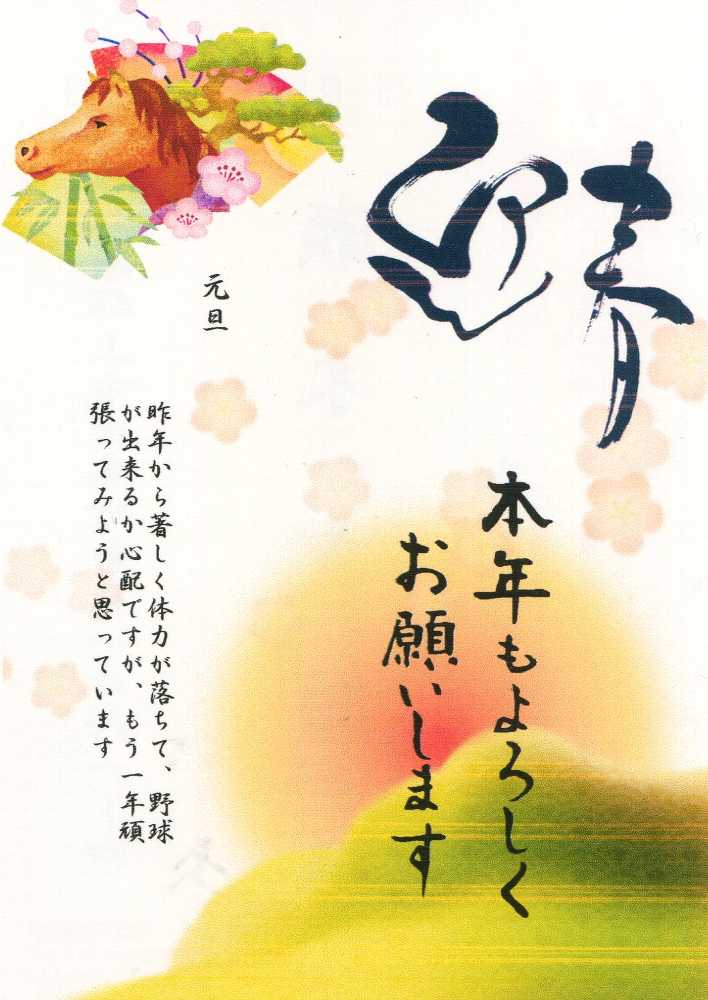 迎春
本年もよろしく
お願いします
元旦
昨年から著しく体力が落ちて、野球
が出来るか心配ですが、もう一年頑
張ってみようと思っています